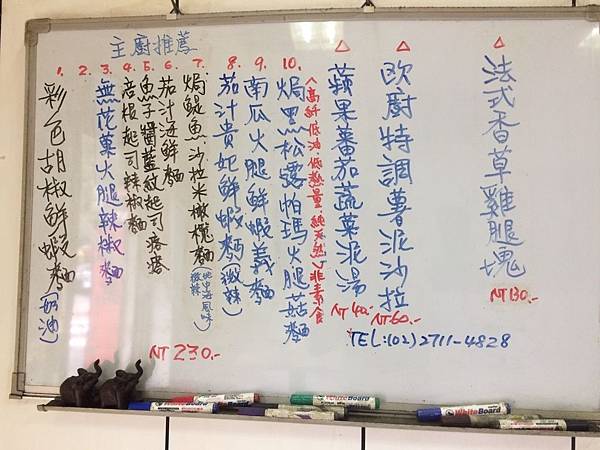 主廚推薦
1. 彩色胡椒鮮蝦麵(奶油)
2.
3. 無花菓火腿辣椒麵
4. 培根起司辣椒麵
5. 魚子醬藍紋起司塔塔
6. 茄汁海鮮麵
7. 焗鯷魚沙拉米橄欖麵(地中海風味 微辣)
8. 茄汁貴妃鮮蝦麵(微辣)
9. 南瓜火腿鮮蝦義麵
10. 焗黑松露帕瑪火腿菇麵
NT 230.-
(高纖、低油、低熱量、純天然)非素食
△ 蘋果蕃茄蔬菓泥湯 NT 40.-
△ 歐廚特調薯泥沙拉 NT 60.-
△ 法式香草雞腿塊 NT 130.-
TEL:(02)2711-4828
WhiteBoard
WhiteBoard
WhiteBoard